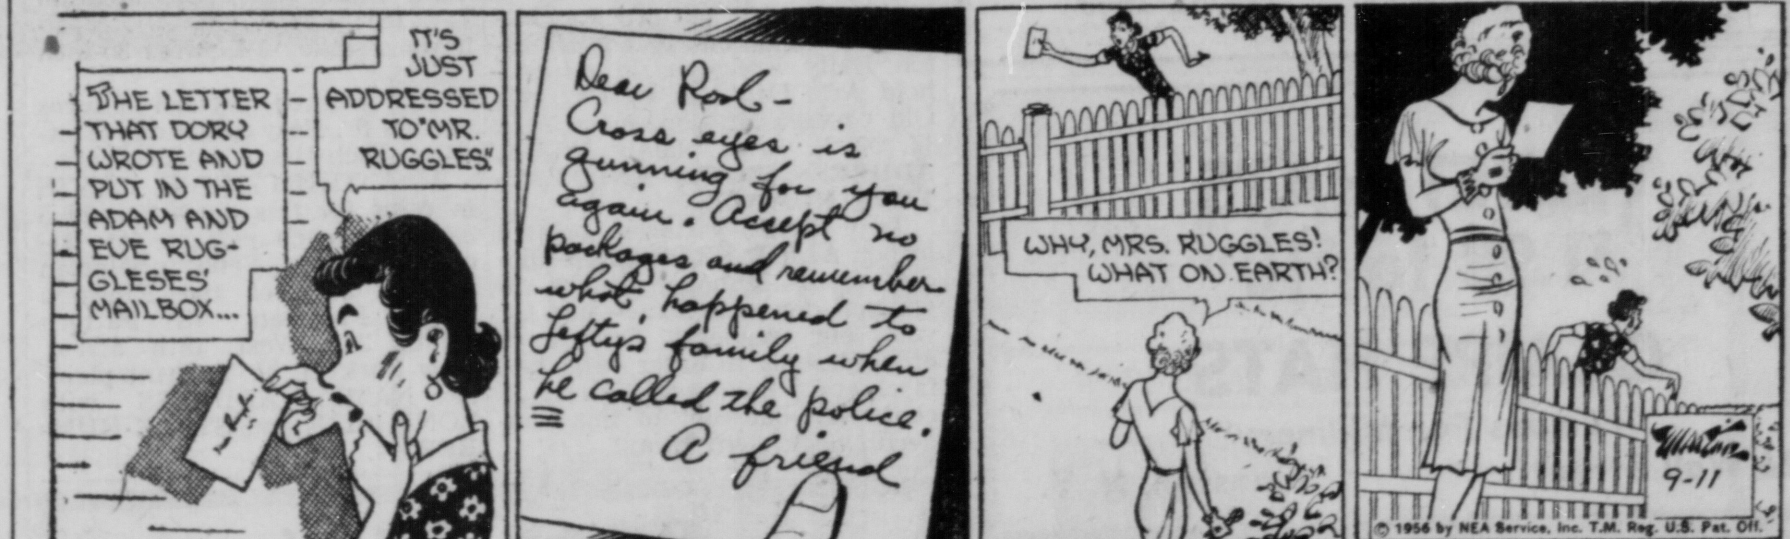 THE LETTER
THAT DORY
WROTE AND
PUT IN THE
ADAM AND
EVE RUG-
GLESES'
MAILBOX...
IT'S
JUST
ADDRESSED
TO "MR.
RUGGLES."
Dear Rod-
Cross eyes is
gunning for you
again. Accept no
packages and remember
what happened to
Lefty's family when
he called the police.
A friend
WHY, MRS. RUGGLES!
WHAT ON EARTH?
9-11
© 1956 by NEA Service, Inc. T.M. Reg. U.S. Pat. Off.